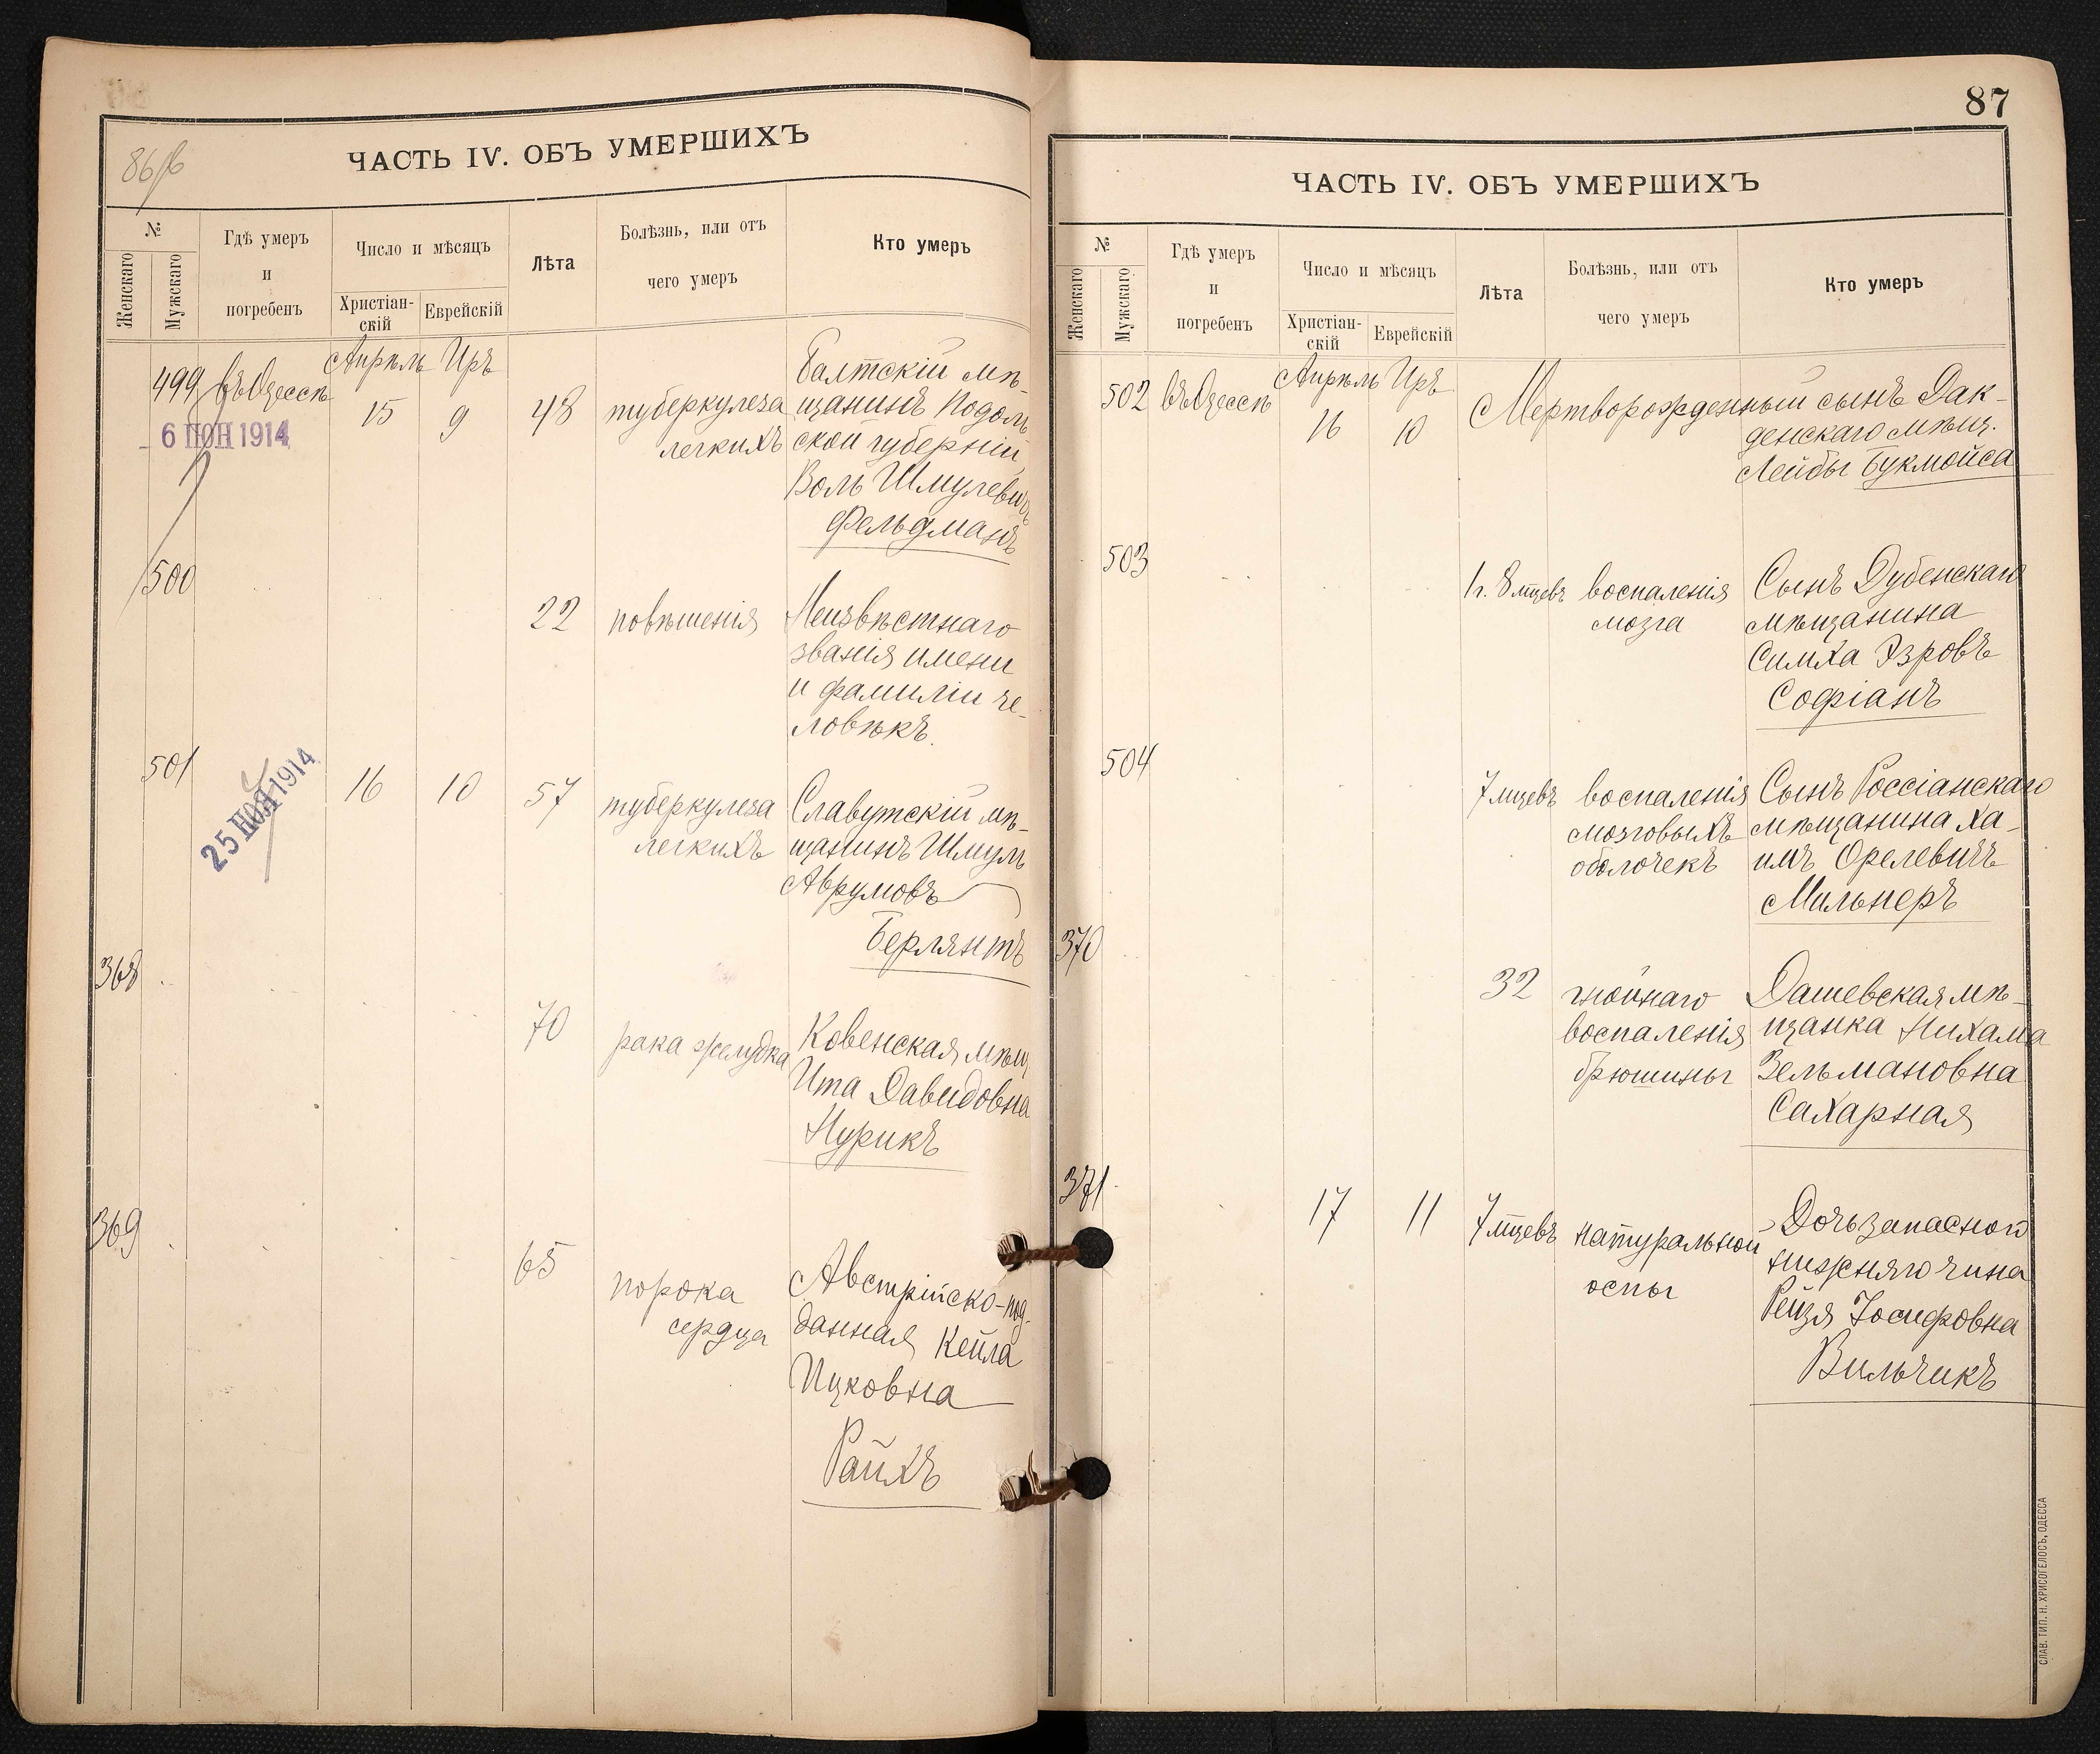 86/б
ЧАСТЬ IV. ОБЪ УМЕРШИХЪ
№
Женскаго
Мужскаго
Гдѣ умеръ
и
погребенъ
Число и мѣсяцъ
Христіан-
скій
Еврейскій
Лѣта
Болѣзнь, или отъ
чего умеръ
Кто умеръ
499
въ Одессѣ
Апрѣль Иръ
15
9
48
туберкулеза
легкихъ
Балтскій мѣ-
щанинъ Подоль
ской губерніи
Воль Шмулевичъ
Фельдманъ
6 ІЮН 1914
500
22
повѣшенія
Неизвѣстнаго
званія имени
и фамиліи че-
ловѣкъ.
501
25 1914
16
10
57
туберкулеза
легкихъ
Славутскій мѣ-
щанинъ Шмуль
Аврумовъ
Берлянтъ
368
70
рака желудка
Ковенская мѣщ
Ита Давидовна
Нурикъ
369
65
порока
сердца
Австрійско-под-
данная Кейла
Ицковна
Райхъ
87
ЧАСТЬ IV. ОБЪ УМЕРШИХЪ
№
Женскаго
Мужскаго
Гдѣ умеръ
и
погребенъ
Число и мѣсяцъ
Христіан-
скій
Еврейскій
Лѣта
Болѣзнь, или отъ
чего умеръ
Кто умеръ
502
въ Одессѣ
Апрѣль Иръ
16
10
Мертворожденный сынъ Дак-
денскаго мѣщ.
Лейбы Букмойса
503
1 г. 8 мцевъ
воспаленія
мозга
Сынъ Дубенскаго
мѣщанина
Симха Эзровъ
Софіанъ
504
7 мцевъ
воспаленія
мозговыхъ
оболочекъ
Сынъ Россіанскаго
мѣщанина Ха-
имъ Орелевичъ
Мильнеръ
370
32
гнойнаго
воспаленія
брюшины
Дашевская мѣ-
щанка Нихама
Зельмановна
Сахарная
371
17
11
7 мцевъ
натуральной
оспы
Дочь запасной
нижняго чина
Рейзя Іосифовна
Вильчикъ
СЛАВ. ТИП. Н. ХРИСОГЕЛОСЪ, ОДЕССА